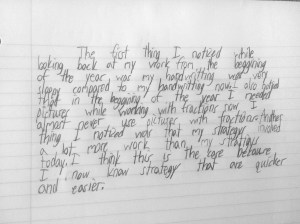 The first thing I noticed while
looking back at my work from the beggining
of the year was my handwritting was very
sloppy compared to my handwritting now. I also noticed
that in the beggining of the year I needed
pictures while working with fractions now, I
almost never use pictures with fractions. Another
thing I noticed was that my strategy involved
a lot more work than my strategies
today. I think this is the case because
I now know strategy that are quicker
and easier.